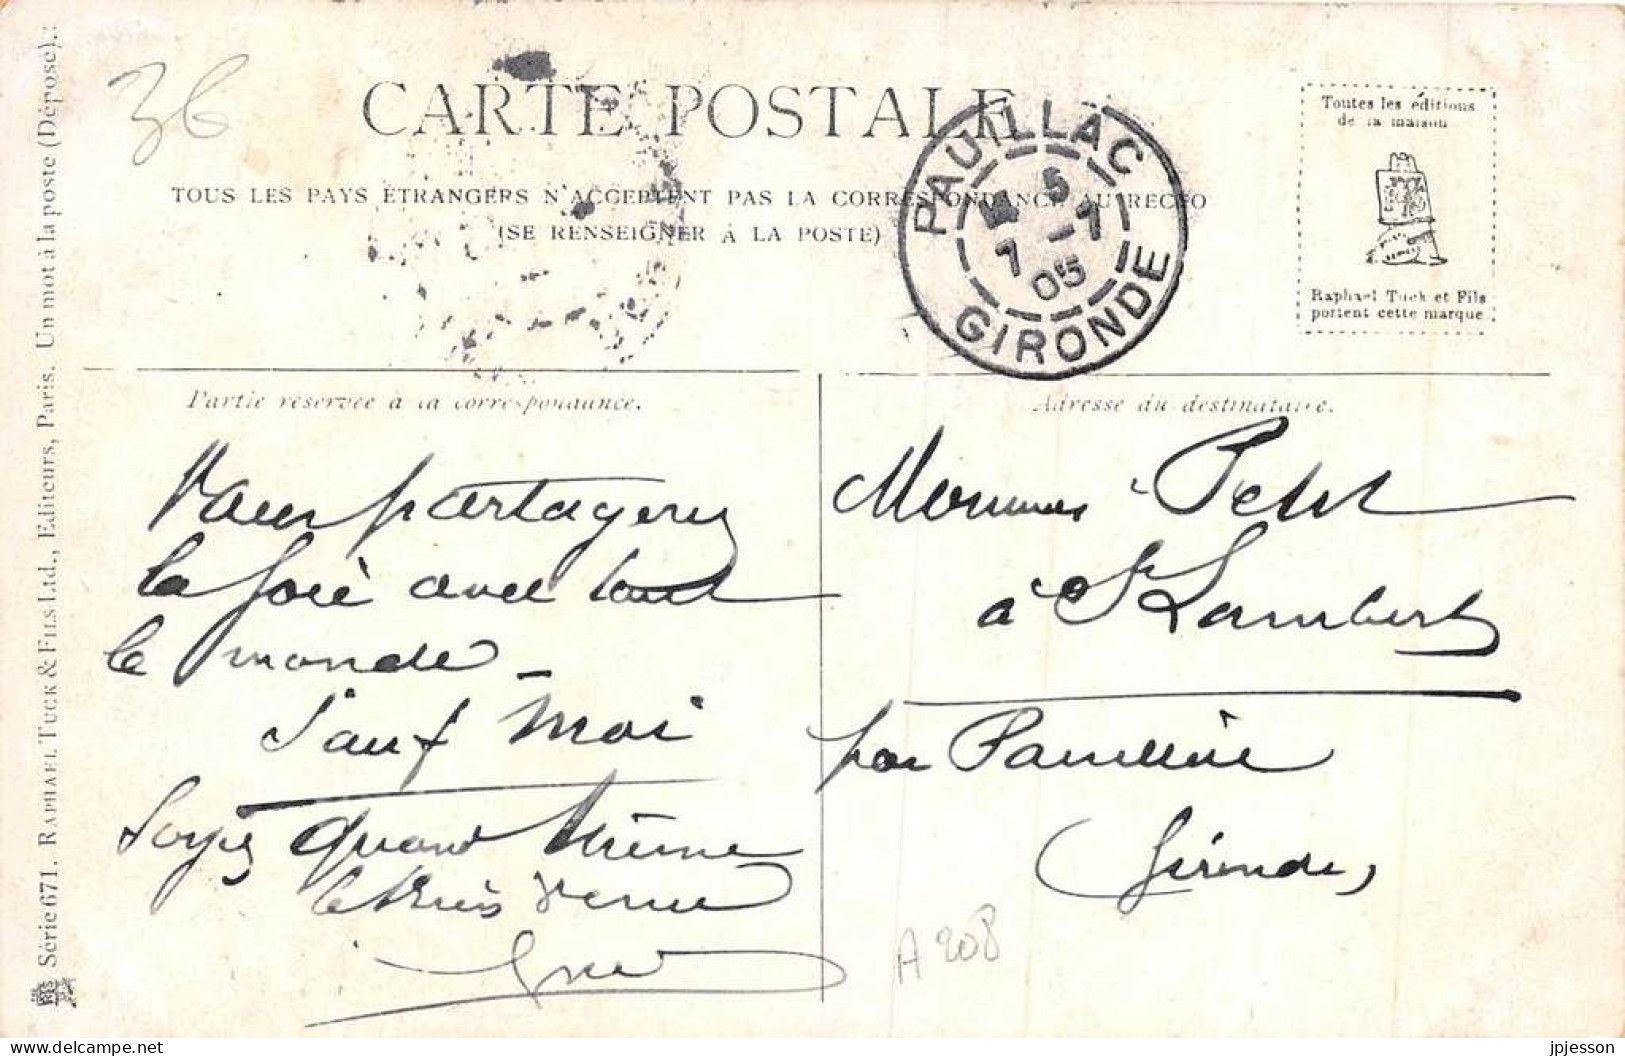 36
CARTE POSTALE
TOUS LES PAYS ETRANGERS N'ACCEPTENT PAS LA CORRESPONDANCE AU RECTO
(SE RENSEIGNER A LA POSTE)
PAUILLAC
5
7 -7
05
GIRONDE
Toutes les éditions
de la maison
Raphael Tuck et Fils
portent cette marque
Série 671. RAPHAEL TUCK & FILS Ltd., Editeurs, Paris. Un mot à la poste (Déposé).
Partie réservée à la correspondance.
partagerez
la joie avec tout
le monde -
Sauf moi
Soyez quand même
Adresse du destinataire.
Petit
à St Lambert
par
Gironde,
A 208
jpjesson